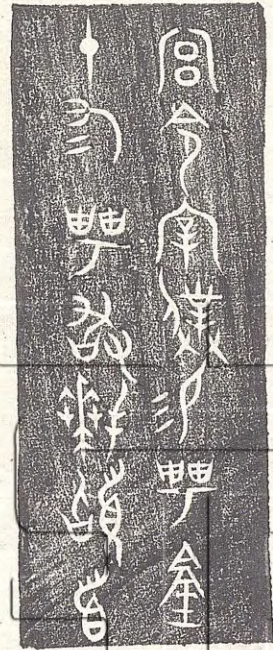 宮令宰僕易甹金
十匀甹敢拜䭫首